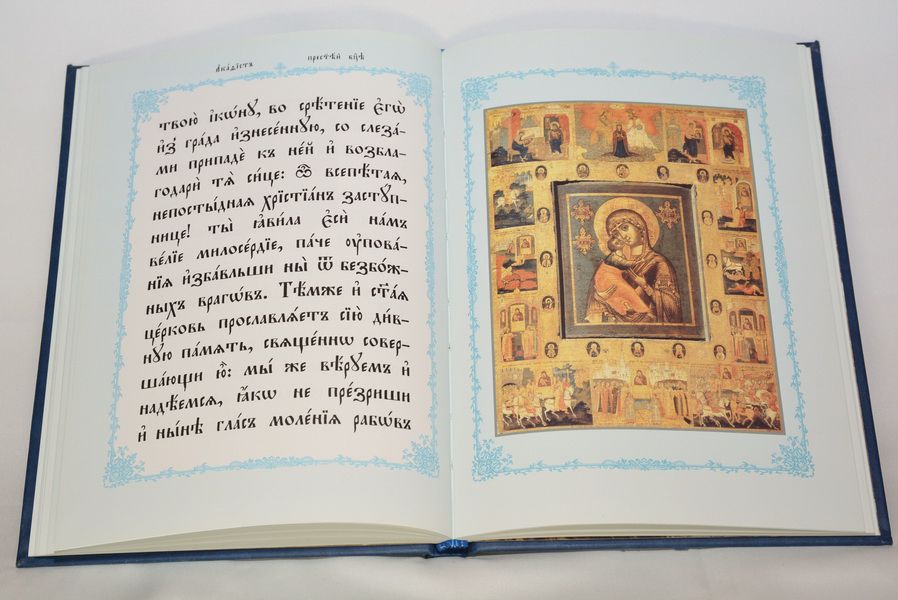 а҆ка́ѳїстъ прест҃ѣ́й бц҃ѣ
твою̀ і҆кѡ́нꙋ, во срѣ́тенїе є҆гѡ̀
и҆з̾ гра́да и҆знесе́ннꙋю, со слеза́-
ми припадѐ къ не́й и҆ возбла-
годарѝ тѧ̀ си́це: ѽ всепѣ́таѧ,
непосты́днаѧ хрїстїа́нъ застꙋ́п-
нице! ты̀ ꙗ҆ви́ла є҆сѝ на́мъ
ве́лїе милосе́рдїе, па́че ᲂу҆пова́-
нїѧ и҆зба́вльши ны̀ ѿ безбо́ж-
ныхъ врагѡ́въ. Тѣ́мже и҆ ст҃а́ѧ
це́рковь прославлѧ́етъ сїю̀ ди́в-
нꙋю па́мѧть, свѧще́ннѡ совер-
ша́ющи ю҆̀: мы́ же вѣ́рꙋемъ и҆
надѣ́емсѧ, ꙗ҆́кѡ не пре́зриши
и҆ ны́нѣ гла́съ моле́нїѧ рабѡ́въ